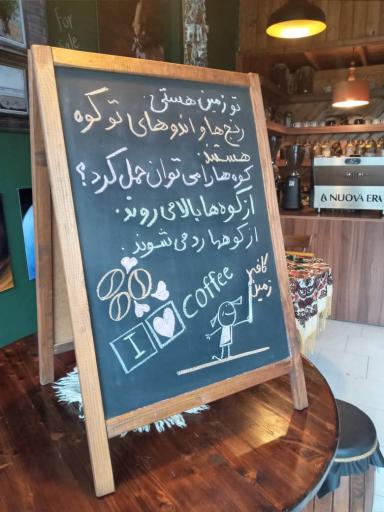 تو زمین هستی.
رنج‌ها و اندوهای تو کوه
هستند.
کوه‌ها را می توان حمل کرد؟
از کوه‌ها بالا می روند.
از کوهها رد می شوند.
I Coffee
کافه
زمین
NUOVA
For